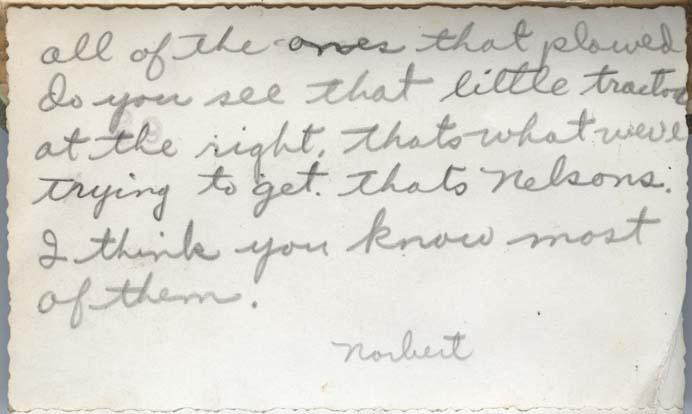 all of the ones that plowed
do you see that little tractor
at the right. thats what we've
trying to get. thats Nelsons.
I think you know most
of them.
Norbert